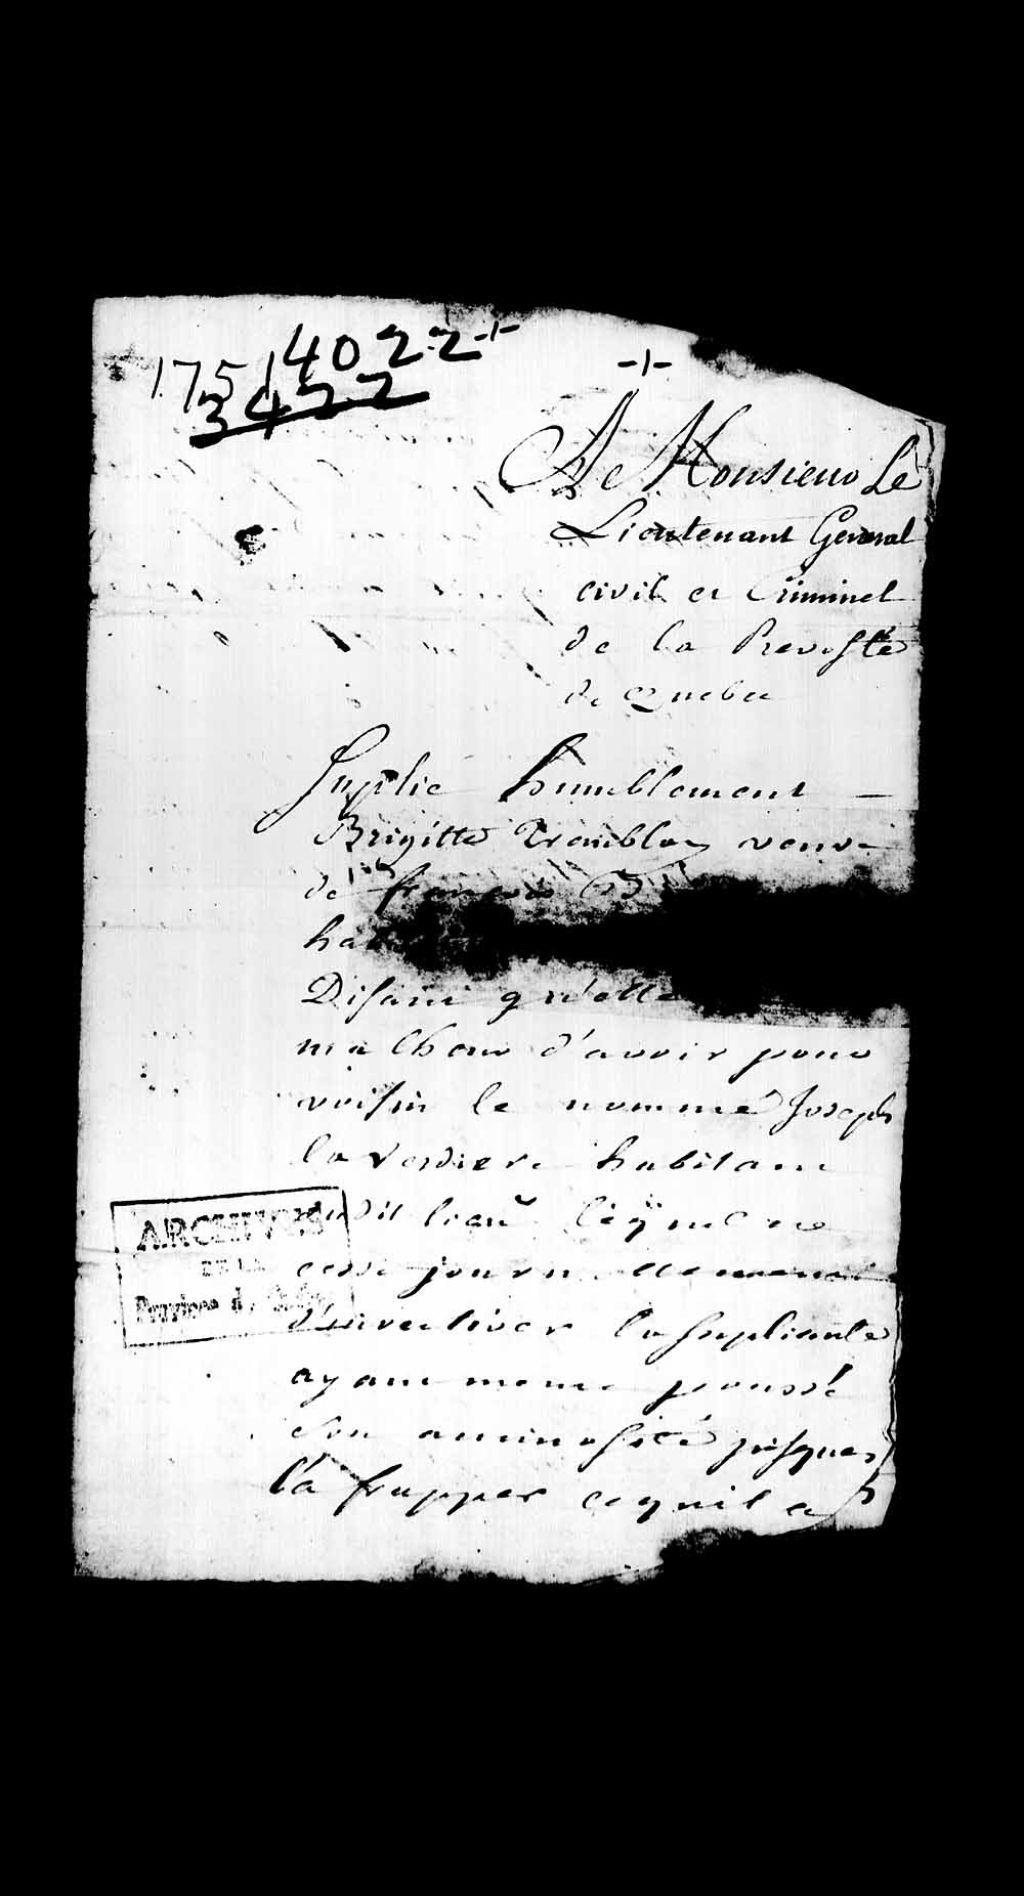 1751 4022
3422
A Monsieur Le
Lieutenant General
civil et Criminel
de la Prevosté
de Quebec
Suplie humblement
Brigitte Tremblay veuve
de françois
Disant qu'elle
malheur d'avoir pour
voisin le nommé Joseph
la Verdiere habitant
audit lieu lequel ne
cesse journellement
d'invectiver la supliante
ayant meme poussé
son animosité jusques
la frapper ce quil a
ARCHIVES
DE LA
Province de Québec